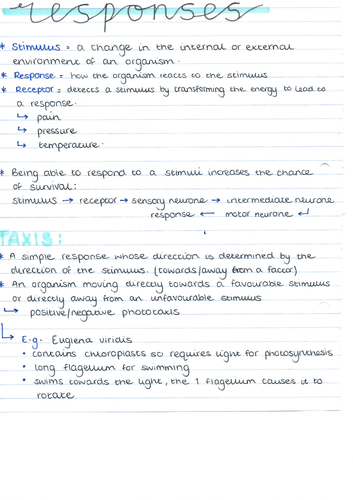 responses
* Stimulus = a change in the internal or external
environment of an organism.
* Response = how the organism reacts to the stimulus
* Receptor = detects a stimulus by transforming the energy to lead to
a response.
↳ pain
↳ pressure
↳ temperature.
* Being able to respond to a stimuli increases the chance
of survival:
stimulus → receptor → sensory neurone → intermediate neurone
response ← motor neurone ↲
TAXIS:
* A simple response whose direction is determined by the
direction of the stimulus. (towards/away from a factor)
* An organism moving directly towards a favourable stimulus
or directly away from an unfavourable stimulus
↳ positive/negative phototaxis
↳ E.g. Euglena viridis
• contains chloroplasts so requires light for photosynthesis
• long flagellum for swimming
• swims towards the light, the 1 flagellum causes it to
rotate